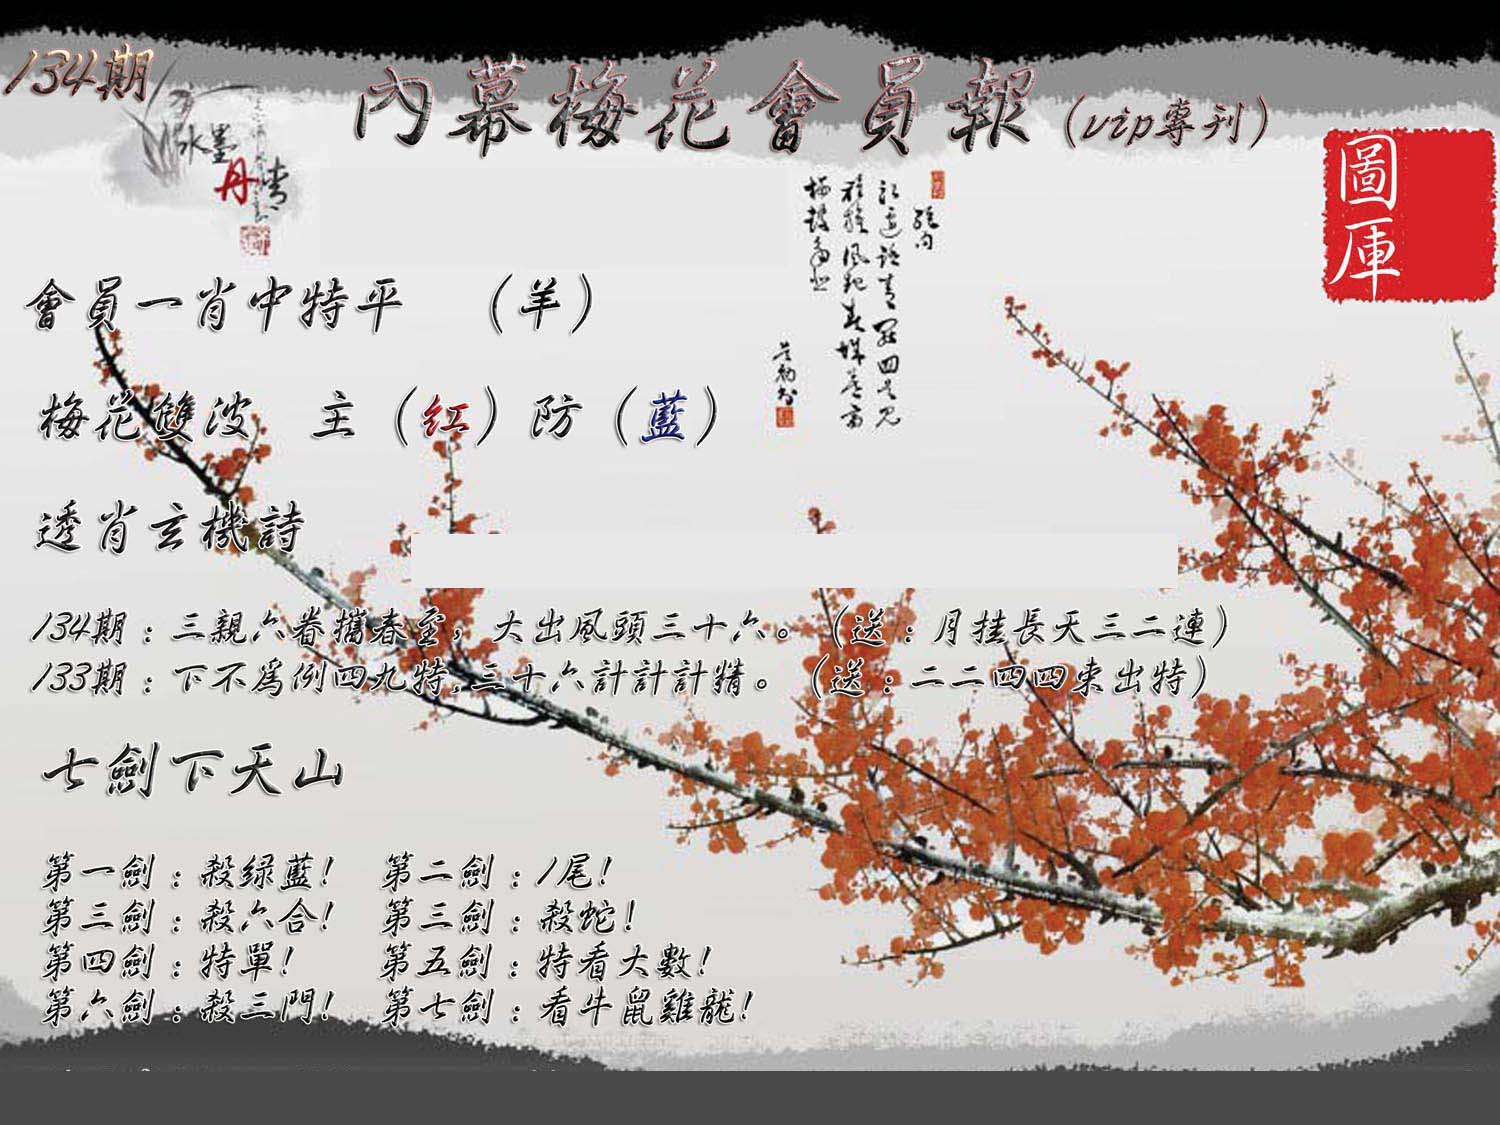 134期
內幕梅花會員報(vip專刊)
圖
庫
水墨
丹青
會員一肖中特平 (羊)
梅花雙波 主(紅)防(藍)
透肖玄機詩
134期:三親六眷攜春至,大出風頭三十六。(送:月挂長天三二連)
133期:下不為例四九特,三十六計計計精。(送:二二四四束出特)
七劍下天山
第一劍:殺绿藍! 第二劍:1尾!
第三劍:殺六合! 第三劍:殺蛇!
第四劍:特單! 第五劍:特看大數!
第六劍:殺三門! 第七劍:看牛鼠雞龍!